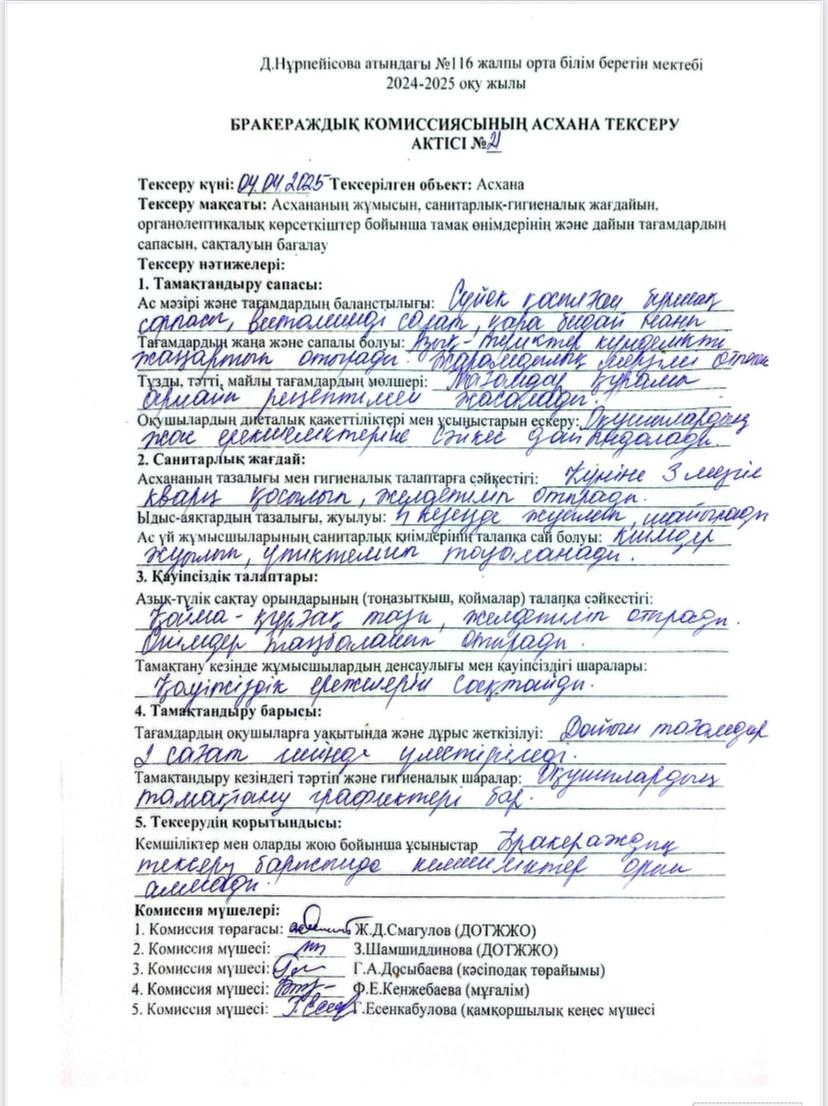 Д.Нұрпейісова атындағы №116 жалпы орта білім беретін мектебі
2024-2025 оқу жылы
БРАКЕРАЖДЫҚ КОМИССИЯСЫНЫҢ АСХАНА ТЕКСЕРУ
АКТІСІ №21
Тексеру күні: 04.04.2025 Тексерілген объект: Асхана
Тексеру мақсаты: Асхананың жұмысын, санитарлық-гигиеналық жағдайын,
органолептикалық көрсеткіштер бойынша тамақ өнімдерінің және дайын тағамдардың
сапасын, сақталуын бағалау
Тексеру нәтижелері:
1. Тамақтандыру сапасы:
Ас мәзірі және тағамдардың баланстылығы: Сүйек қосылған бұршақ
сорпасы, Витаминді салат, қара бидай наны
Тағамдардың жаңа және сапалы болуы: Азық-түліктер күнделікті
жаңартып отырады. Жарамдылық мерзімі өтпеген
Тұзды, тәтті, майлы тағамдардың мөлшері: Тағамдар құрамы
арнайы рецептімен жасалады.
Оқушылардың диеталық қажеттіліктері мен ұсыныстарын ескеру: Оқушылардың
жас ерекшеліктеріне сәйкес дайындалады.
2. Санитарлық жағдай:
Асхананың тазалығы мен гигиеналық талаптарға сәйкестігі: Күніне 3 мезгіл
кварц қосылып, желдетіліп отырады.
Ыдыс-аяқтардың тазалығы, жуылуы: кезеңде жуылып, шайылады
Ас үй жұмысшыларының санитарлық киімдерінің талапқа сай болуы: Киімдер
жуылып, үтіктеліп тазаланады.
3. Қауіпсіздік талаптары:
Азық-түлік сақтау орындарының (тоңазытқыш, қоймалар) талапқа сәйкестігі:
Қойма - құрғақ таза, желдетіліп отырады.
Өнімдер таңбаланып отырады.
Тамақтану кезінде жұмысшылардың денсаулығы мен қауіпсіздігі шаралары:
Қауіпсіздік ережелерін сақтайды.
4. Тамақтандыру барысы:
Тағамдардың оқушыларға уақытында және дұрыс жеткізілуі: Дайын тағамдар
2 сағат ішінде үлестіріледі.
Тамақтандыру кезіндегі тәртіп және гигиеналық шаралар: Оқушылардың
тамақтану графиктері бар.
5. Тексерудің қорытындысы:
Кемшіліктер мен оларды жою бойынша ұсыныстар Бракераждың
тексеру барысында кемшіліктер орын
алмады.
Комиссия мүшелері:
1. Комиссия төрағасы: Ж.Д.Смагулов (ДОТЖЖО)
2. Комиссия мүшесі: З.Шамшиддинова (ДОТЖЖО)
3. Комиссия мүшесі: Г.А.Досыбаева (кәсіподақ төрайымы)
4. Комиссия мүшесі: Ф.Е.Кенжебаева (мұғалім)
5. Комиссия мүшесі: Г.Есенкабулова (қамқоршылық кеңес мүшесі